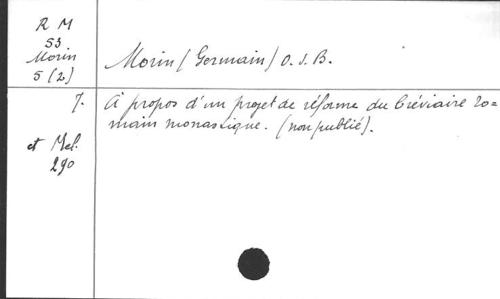 R M
53
Morin
5 (2)
Morin (Germain) O. S. B.
7. A propos d'un projet de réforme du bréviaire ro=
main monastique. (non publié).
et Mel.
290